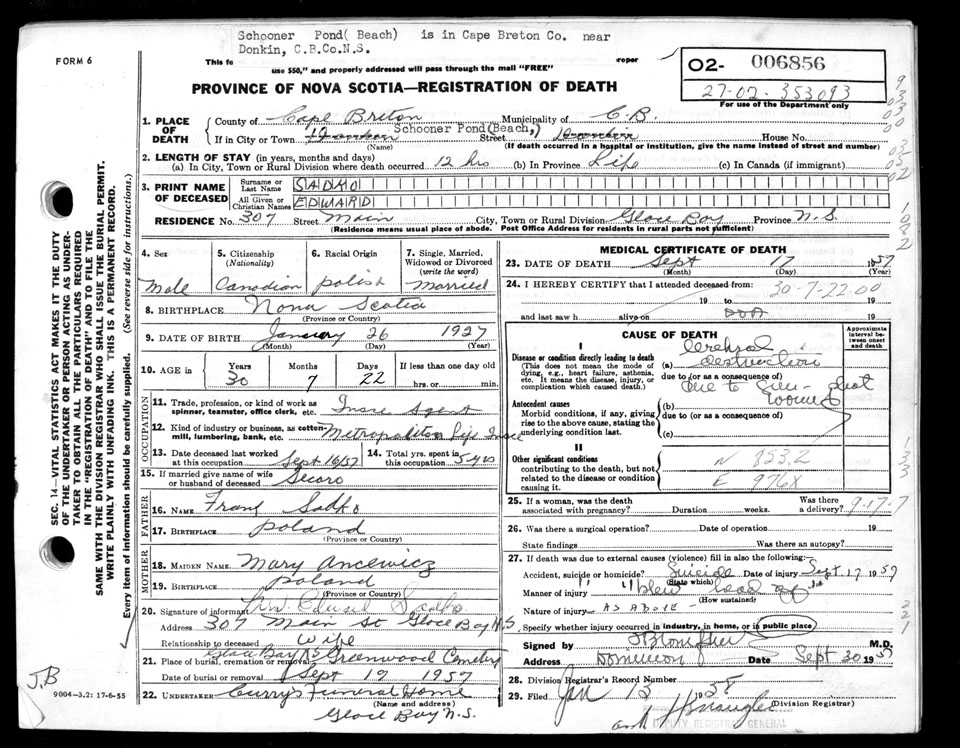 Schooner Pond( Beach) is in Cape Breton Co. near
Donkin, C.B.Co.N.S.
FORM 6
This fo roper
use $50," and properly addressed will pass through the mail "FREE"
PROVINCE OF NOVA SCOTIA—REGISTRATION OF DEATH
02- 006856
27-02-353093
For use of the Department only
1. PLACE OF DEATH
County of Cape Breton Municipality of C.B.
If in City or Town Schooner Pond(Beach,) Street House No.
(Name) (If death occurred in a hospital or institution, give the name instead of street and number)
2. LENGTH OF STAY (in years, months and days)
(a) In City, Town or Rural Division where death occurred 12 hrs (b) In Province Life (c) In Canada (if immigrant)
3. PRINT NAME OF DECEASED
Surname or Last Name SADKO
All Given or Christian Names EDWARD
RESIDENCE No. 307 Street Main City, Town or Rural Division Glace Bay Province N.S.
(Residence means usual place of abode. Post Office Address for residents in rural parts not sufficient)
SEC. 14—VITAL STATISTICS ACT MAKES IT THE DUTY
OF THE UNDERTAKER OR PERSON ACTING AS UNDER-
TAKER TO OBTAIN ALL THE PARTICULARS REQUIRED
IN THE "REGISTRATION OF DEATH" AND TO FILE THE
SAME WITH THE DIVISION REGISTRAR WHO SHALL ISSUE THE BURIAL PERMIT.
WRITE PLAINLY WITH UNFADING INK. THIS IS A PERMANENT RECORD.
Every item of information should be carefully supplied. (See reverse side for instructions.)
4. Sex 5. Citizenship (Nationality) 6. Racial Origin 7. Single, Married, Widowed or Divorced (write the word)
Male Canadian polish Married
8. BIRTHPLACE Nova Scotia
(Province or Country)
9. DATE OF BIRTH January 26 1927
(Month) (Day) (Year)
10. AGE in Years Months Days If less than one day old
30 7 22 hrs. or min.
OCCUPATION
11. Trade, profession, or kind of work as spinner, teamster, office clerk, etc. Insce Agent
12. Kind of industry or business, as cotton-mill, lumbering, bank, etc. Metropolitan Life Insce
13. Date deceased last worked at this occupation Sept 16/57 14. Total yrs. spent in this occupation 5 yrs
15. If married give name of wife or husband of deceased
FATHER
16. NAME Frank Sadko
17. BIRTHPLACE poland
(Province or Country)
MOTHER
18. MAIDEN NAME Mary Ancewicz
19. BIRTHPLACE poland
(Province or Country)
20. Signature of informant Mrs. Edward Sadko
Address 307 Main St Glace Bay N.S
Relationship to deceased wife
21. Place of burial, cremation or removal Glace Bay NS Greenwood Cemetery
Date of burial or removal Sept 19 1957
22. UNDERTAKER Curry's Funeral Home
Glace Bay N.S.
J.B
9004-3.2: 17-6-55
MEDICAL CERTIFICATE OF DEATH
23. DATE OF DEATH Sept 17 1957
(Month) (Day) (Year)
24. I HEREBY CERTIFY that I attended deceased from: 30-7-22.00
19 to 19
and last saw h alive on DOA 19
CAUSE OF DEATH
Approximate interval between onset and death
I
Disease or condition directly leading to death
(This does not mean the mode of dying, e.g., heart failure, asthenia, etc. It means the disease, injury, or complication which caused death.)
(a) Cerebral destruction
due to (or as a consequence of)
due to Gun-shot wound
Antecedent causes
Morbid conditions, if any, giving rise to the above cause, stating the underlying condition last.
(b)
due to (or as a consequence of)
(c)
II
Other significant conditions
contributing to the death, but not related to the disease or condition causing it.
N 853.2
E 976X
25. If a woman, was the death associated with pregnancy? Duration weeks. Was there a delivery?
9-17-7
26. Was there a surgical operation? Date of operation 19
State findings Was there an autopsy?
27. If death was due to external causes (violence) fill in also the following:
Accident, suicide or homicide? Suicide Date of injury Sept. 17 1957
(State which)
Manner of injury "blew head off"
(How sustained)
Nature of injury AS ABOVE -
Specify whether injury occurred in industry, in home, or in public place
Signed by M.D.
Address Dominion Date Sept 30 1957
28. Division Registrar's Record Number
29. Filed Jan 13 1958
(Division Registrar)
DEPUTY REGISTRAR GENERAL